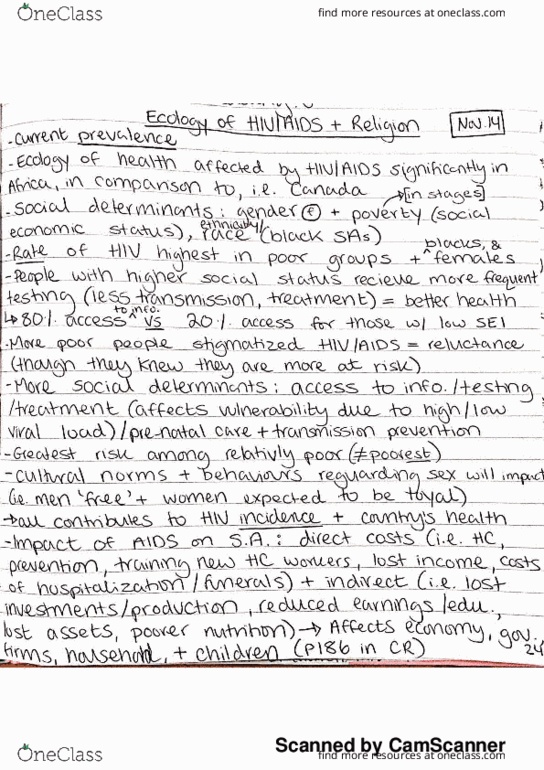 OneClass
find more resources at oneclass.com
Ecology of HIV/AIDS + Religion
Nov. 14
-Current prevalence
-Ecology of health affected by HIV/AIDS significantly in
Africa, in comparison to, i.e. Canada
→[in stages]
-Social determinants: gender + poverty (social
economic status), ethnicity/race (black SAs)
blacks, &
-Rate of HIV highest in poor groups + ^females
-People with higher social status recieve more frequent
testing (less transmission, treatment) = better health
to info.
↳80% access ^ vs 20% access for those w/ low SEI
-More poor people stigmatized HIV/AIDS = reluctance
(though they knew they are more at risk)
-More social determinants: access to info./testing
/treatment (affects vulnerability due to high/low
viral load)/pre-natal care + transmission prevention
-Greatest risk among relativly poor (≠poorest)
-Cultural norms + behaviours reguarding sex will impact
(ie. men 'free' + women expected to be loyal)
→all contributes to HIV incidence + country's health
-Impact of AIDS on S.A.: direct costs (i.e. HC,
prevention, training new HC workers, lost income, costs
of hospitalization/funerals) + indirect (i.e. lost
investments/production, reduced earnings/edu.,
lost assets, poorer nutrition) → Affects economy, gov.
firms, household, + children (P186 in CR)
24
Scanned by CamScanner
OneClass
find more resources at oneclass.com